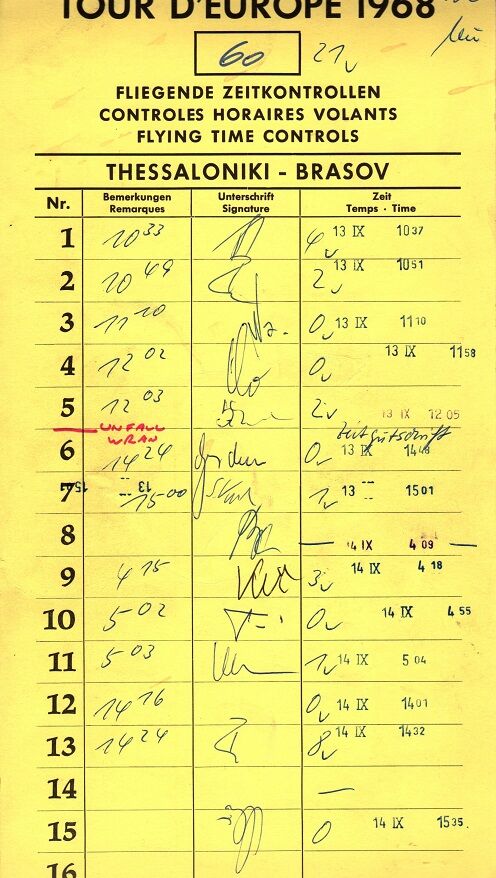 TOUR D'EUROPE 1968
60 21
FLIEGENDE ZEITKONTROLLEN
CONTROLES HORAIRES VOLANTS
FLYING TIME CONTROLS
THESSALONIKI - BRASOV
Nr. Bemerkungen Unterschrift Zeit
Remarques Signature Temps · Time
1 10 33 4 13 IX 10 37
2 10 49 2 13 IX 10 51
3 11 10 0 13 IX 11 10
4 12 02 0 13 IX 11 58
5 12 03 2 13 IX 12 05
UNFALL Zeitgutschrift
WRAN
6 14 24 0 13 IX 14
7 15 00 1 13 15 01
8 — 14 IX 4 09 —
9 4 15 3 14 IX 4 18
10 5 02 0 14 IX 4 55
11 5 03 1 14 IX 5 04
12 14 16 0 14 IX 14 01
13 14 24 8 14 IX 14 32
14 —
15 0 14 IX 15 35
16